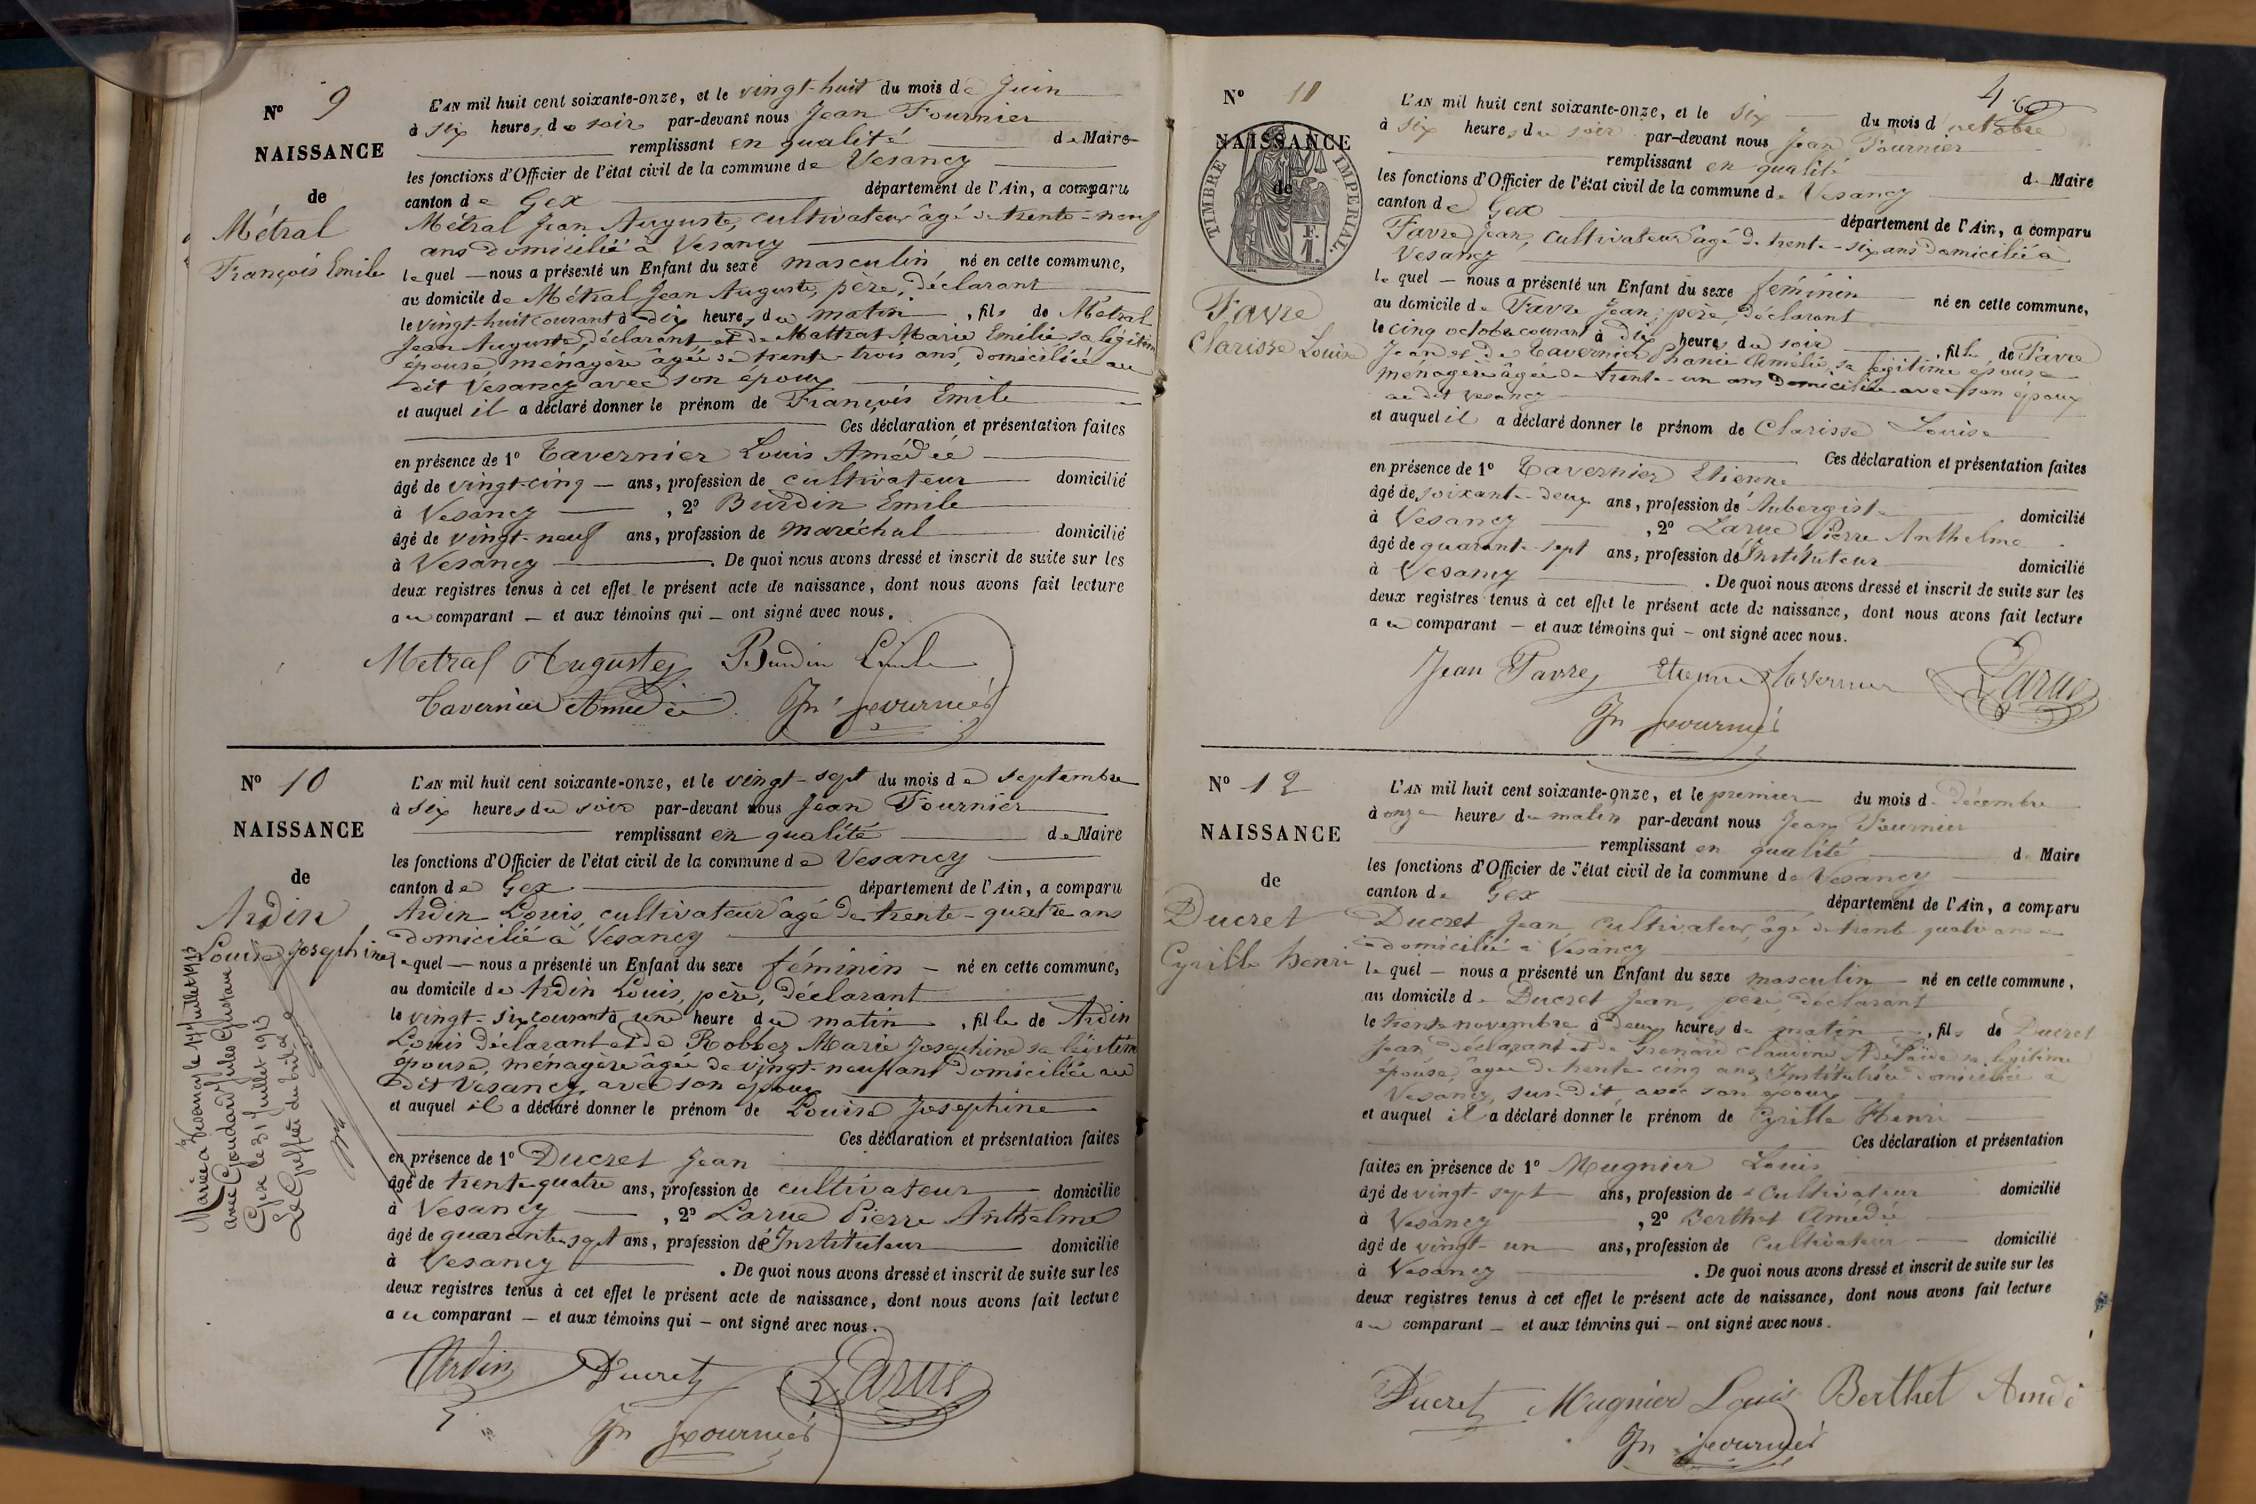 N° 9
NAISSANCE
de
Métral
François Emile
L'AN mil huit cent soixante-onze, et le vingt-huit du mois de Juin
à six heures du soir par-devant nous Jean Fournier
remplissant en qualité de Maire
les fonctions d'Officier de l'état civil de la commune de Vesancy
canton de Gex département de l'Ain, a comparu
Métral Jean Auguste, cultivateur âgé de trente-neuf
ans domicilié à Vesancy
lequel — nous a présenté un Enfant du sexe masculin né en cette commune,
au domicile de Métral Jean Auguste, père, déclarant
le vingt-huit courant à dix heures du matin, fils de Métral
Jean Auguste, déclarant et de Mattrat Marie Emélie sa légitime
épouse, ménagère âgée de trente-trois ans, domiciliée au
dit Vesancy avec son époux
et auquel il a déclaré donner le prénom de François Emile
Ces déclaration et présentation faites
en présence de 1° Tavernier Louis Amédée
âgé de vingt-cinq — ans, profession de cultivateur domicilié
à Vesancy, 2° Burdin Emile
âgé de vingt-neuf ans, profession de maréchal domicilié
à Vesancy. De quoi nous avons dressé et inscrit de suite sur les
deux registres tenus à cet effet le présent acte de naissance, dont nous avons fait lecture
au comparant — et aux témoins qui — ont signé avec nous.
Metral Auguste Burdin Emile
Tavernier Amédée Jn Fournier
N° 10
NAISSANCE
de
Ardin
Louise Josephine
Mariée à Vesancy le 17 Juillet 1913
avec Goudard Jules Gustave
Gex le 31 Juillet 1913
Le Greffier du trib al
L'AN mil huit cent soixante-onze, et le vingt-sept du mois de septembre
à six heures du soir par-devant nous Jean Fournier
remplissant en qualité de Maire
les fonctions d'Officier de l'état civil de la commune de Vesancy
canton de Gex département de l'Ain, a comparu
Ardin Louis, cultivateur âgé de trente-quatre ans
domicilié à Vesancy
lequel — nous a présenté un Enfant du sexe féminin — né en cette commune,
au domicile de Ardin Louis, père, déclarant
le vingt-six courant à une heure du matin, fille de Ardin
Louis déclarant et de Robbez Marie Josephine sa légitime
épouse, ménagère âgée de vingt-neuf ans domiciliée au
dit Vesancy, avec son époux
et auquel il a déclaré donner le prénom de Louise Josephine
Ces déclaration et présentation faites
en présence de 1° Ducret Jean
âgé de trente-quatre ans, profession de cultivateur domicilié
à Vesancy, 2° Larue Pierre Anthelme
âgé de quarante-sept ans, profession de Instituteur domicilié
à Vesancy. De quoi nous avons dressé et inscrit de suite sur les
deux registres tenus à cet effet le présent acte de naissance, dont nous avons fait lecture
au comparant — et aux témoins qui — ont signé avec nous.
Ardin Ducret Larue
Jn Fournier
4
N° 11
NAISSANCE
de
TIMBRE IMPERIAL
Favre
Clarisse Louise
L'AN mil huit cent soixante-onze, et le six du mois d'octobre
à six heures du soir par-devant nous Jean Fournier
remplissant en qualité de Maire
les fonctions d'Officier de l'état civil de la commune de Vesancy
canton de Gex département de l'Ain, a comparu
Favre Jean, cultivateur âgé de trente-six ans domicilié à
Vesancy
lequel — nous a présenté un Enfant du sexe féminin né en cette commune,
au domicile de Favre Jean, père, déclarant
le cinq octobre courant à dix heures du soir, fille de Favre
Jean et de Tavernier Phanie Amélie, sa légitime épouse
ménagère âgée de trente-un ans domiciliée avec son époux
au dit Vesancy
et auquel il a déclaré donner le prénom de Clarisse Louise
Ces déclaration et présentation faites
en présence de 1° Tavernier Etienne
âgé de soixante-deux ans, profession de Aubergiste domicilié
à Vesancy, 2° Larue Pierre Anthelme
âgé de quarante-sept ans, profession de Instituteur domicilié
à Vesancy. De quoi nous avons dressé et inscrit de suite sur les
deux registres tenus à cet effet le présent acte de naissance, dont nous avons fait lecture
au comparant — et aux témoins qui — ont signé avec nous.
Jean Favre Etienne Tavernier Larue
Jn Fournier
N° 12
NAISSANCE
de
Ducret
Cyrille Henri
L'AN mil huit cent soixante-onze, et le premier du mois de Décembre
à onze heures du matin par-devant nous Jean Fournier
remplissant en qualité de Maire
les fonctions d'Officier de l'état civil de la commune de Vesancy
canton de Gex département de l'Ain, a comparu
Ducret Jean, cultivateur, âgé de trente quatre ans
domicilié à Vesancy
lequel — nous a présenté un Enfant du sexe masculin — né en cette commune,
au domicile de Ducret Jean, père, déclarant
le trente novembre à deux heures du matin, fils de Ducret
Jean déclarant et de claudine Adelaïde sa légitime
épouse, âgée de trente-cinq ans, Institutrice domiciliée à
Vesancy, sus-dit, avec son époux
et auquel il a déclaré donner le prénom de Cyrille Henri
Ces déclaration et présentation
faites en présence de 1° Mugnier Louis
âgé de vingt-sept ans, profession de Cultivateur domicilié
à Vesancy, 2° Berthet Amédée
âgé de vingt-un ans, profession de Cultivateur domicilié
à Vesancy. De quoi nous avons dressé et inscrit de suite sur les
deux registres tenus à cet effet le présent acte de naissance, dont nous avons fait lecture
au comparant — et aux témoins qui — ont signé avec nous.
Ducret Mugnier Louis Berthet Amédé
Jn Fournier